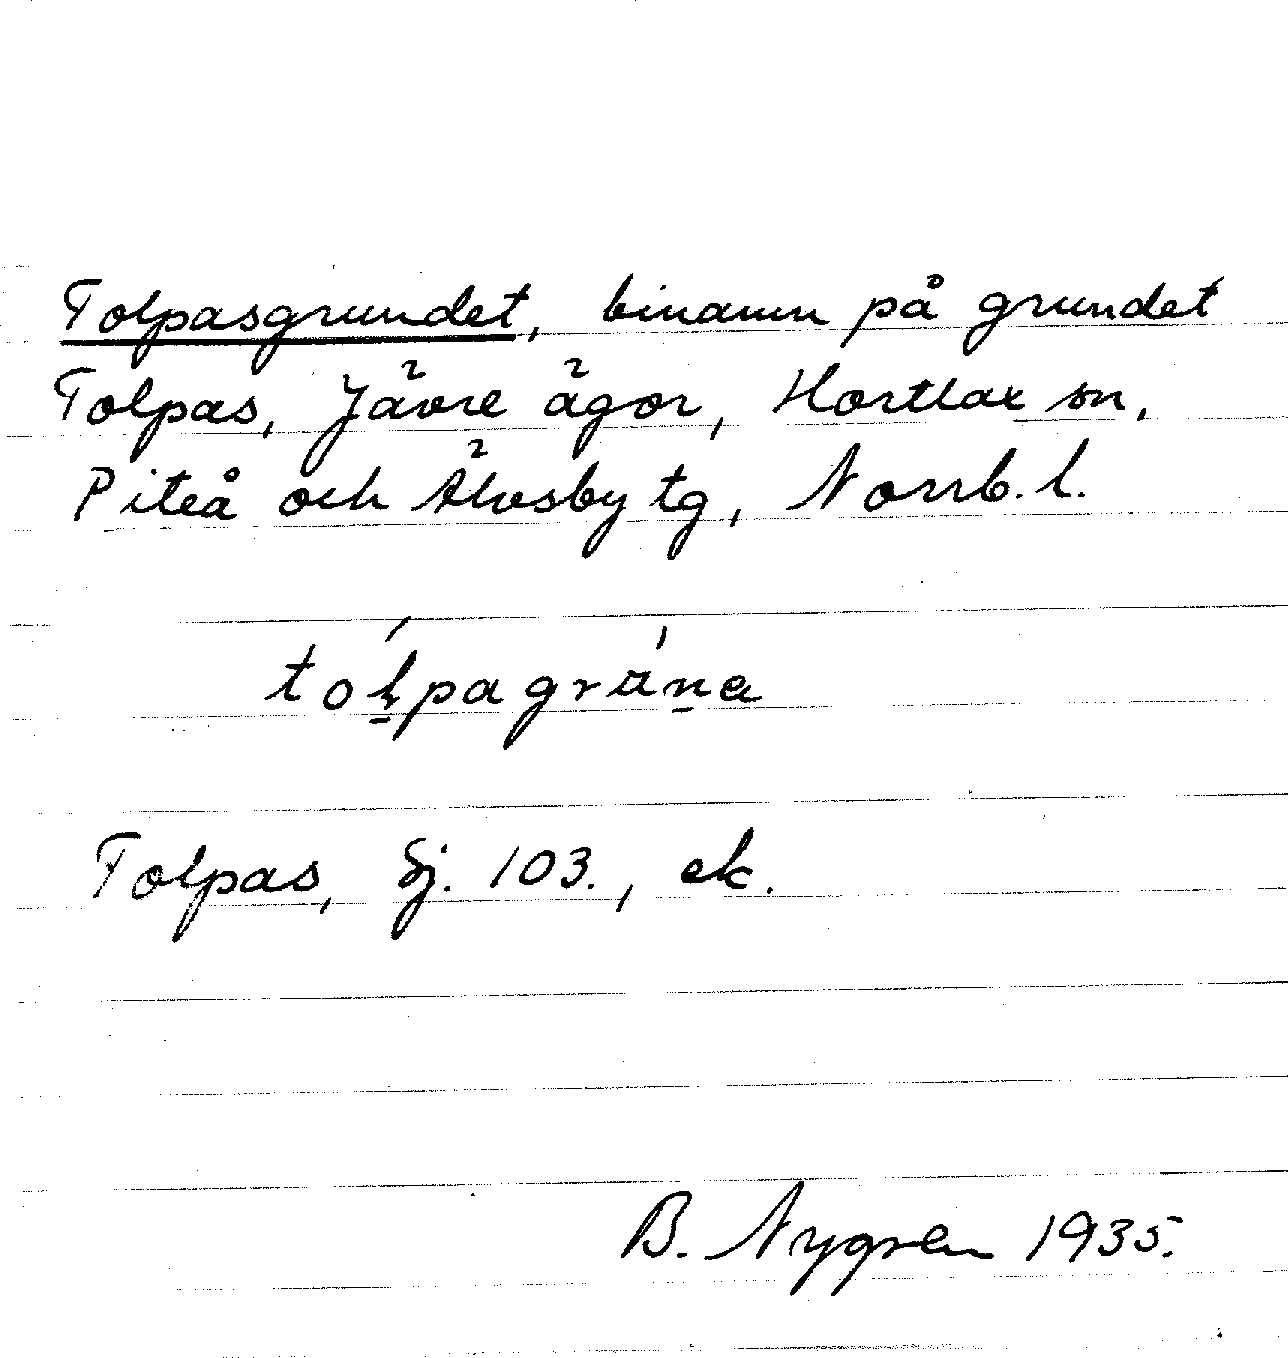 Tolpasgrundet, binamn på grundet
Tolpas, Jävre ägor, Hortlax sn,
Piteå och Älvsby tg, Norrb. l.
Tolpas, Sj. 103., ek.
B. Nygren 1935.